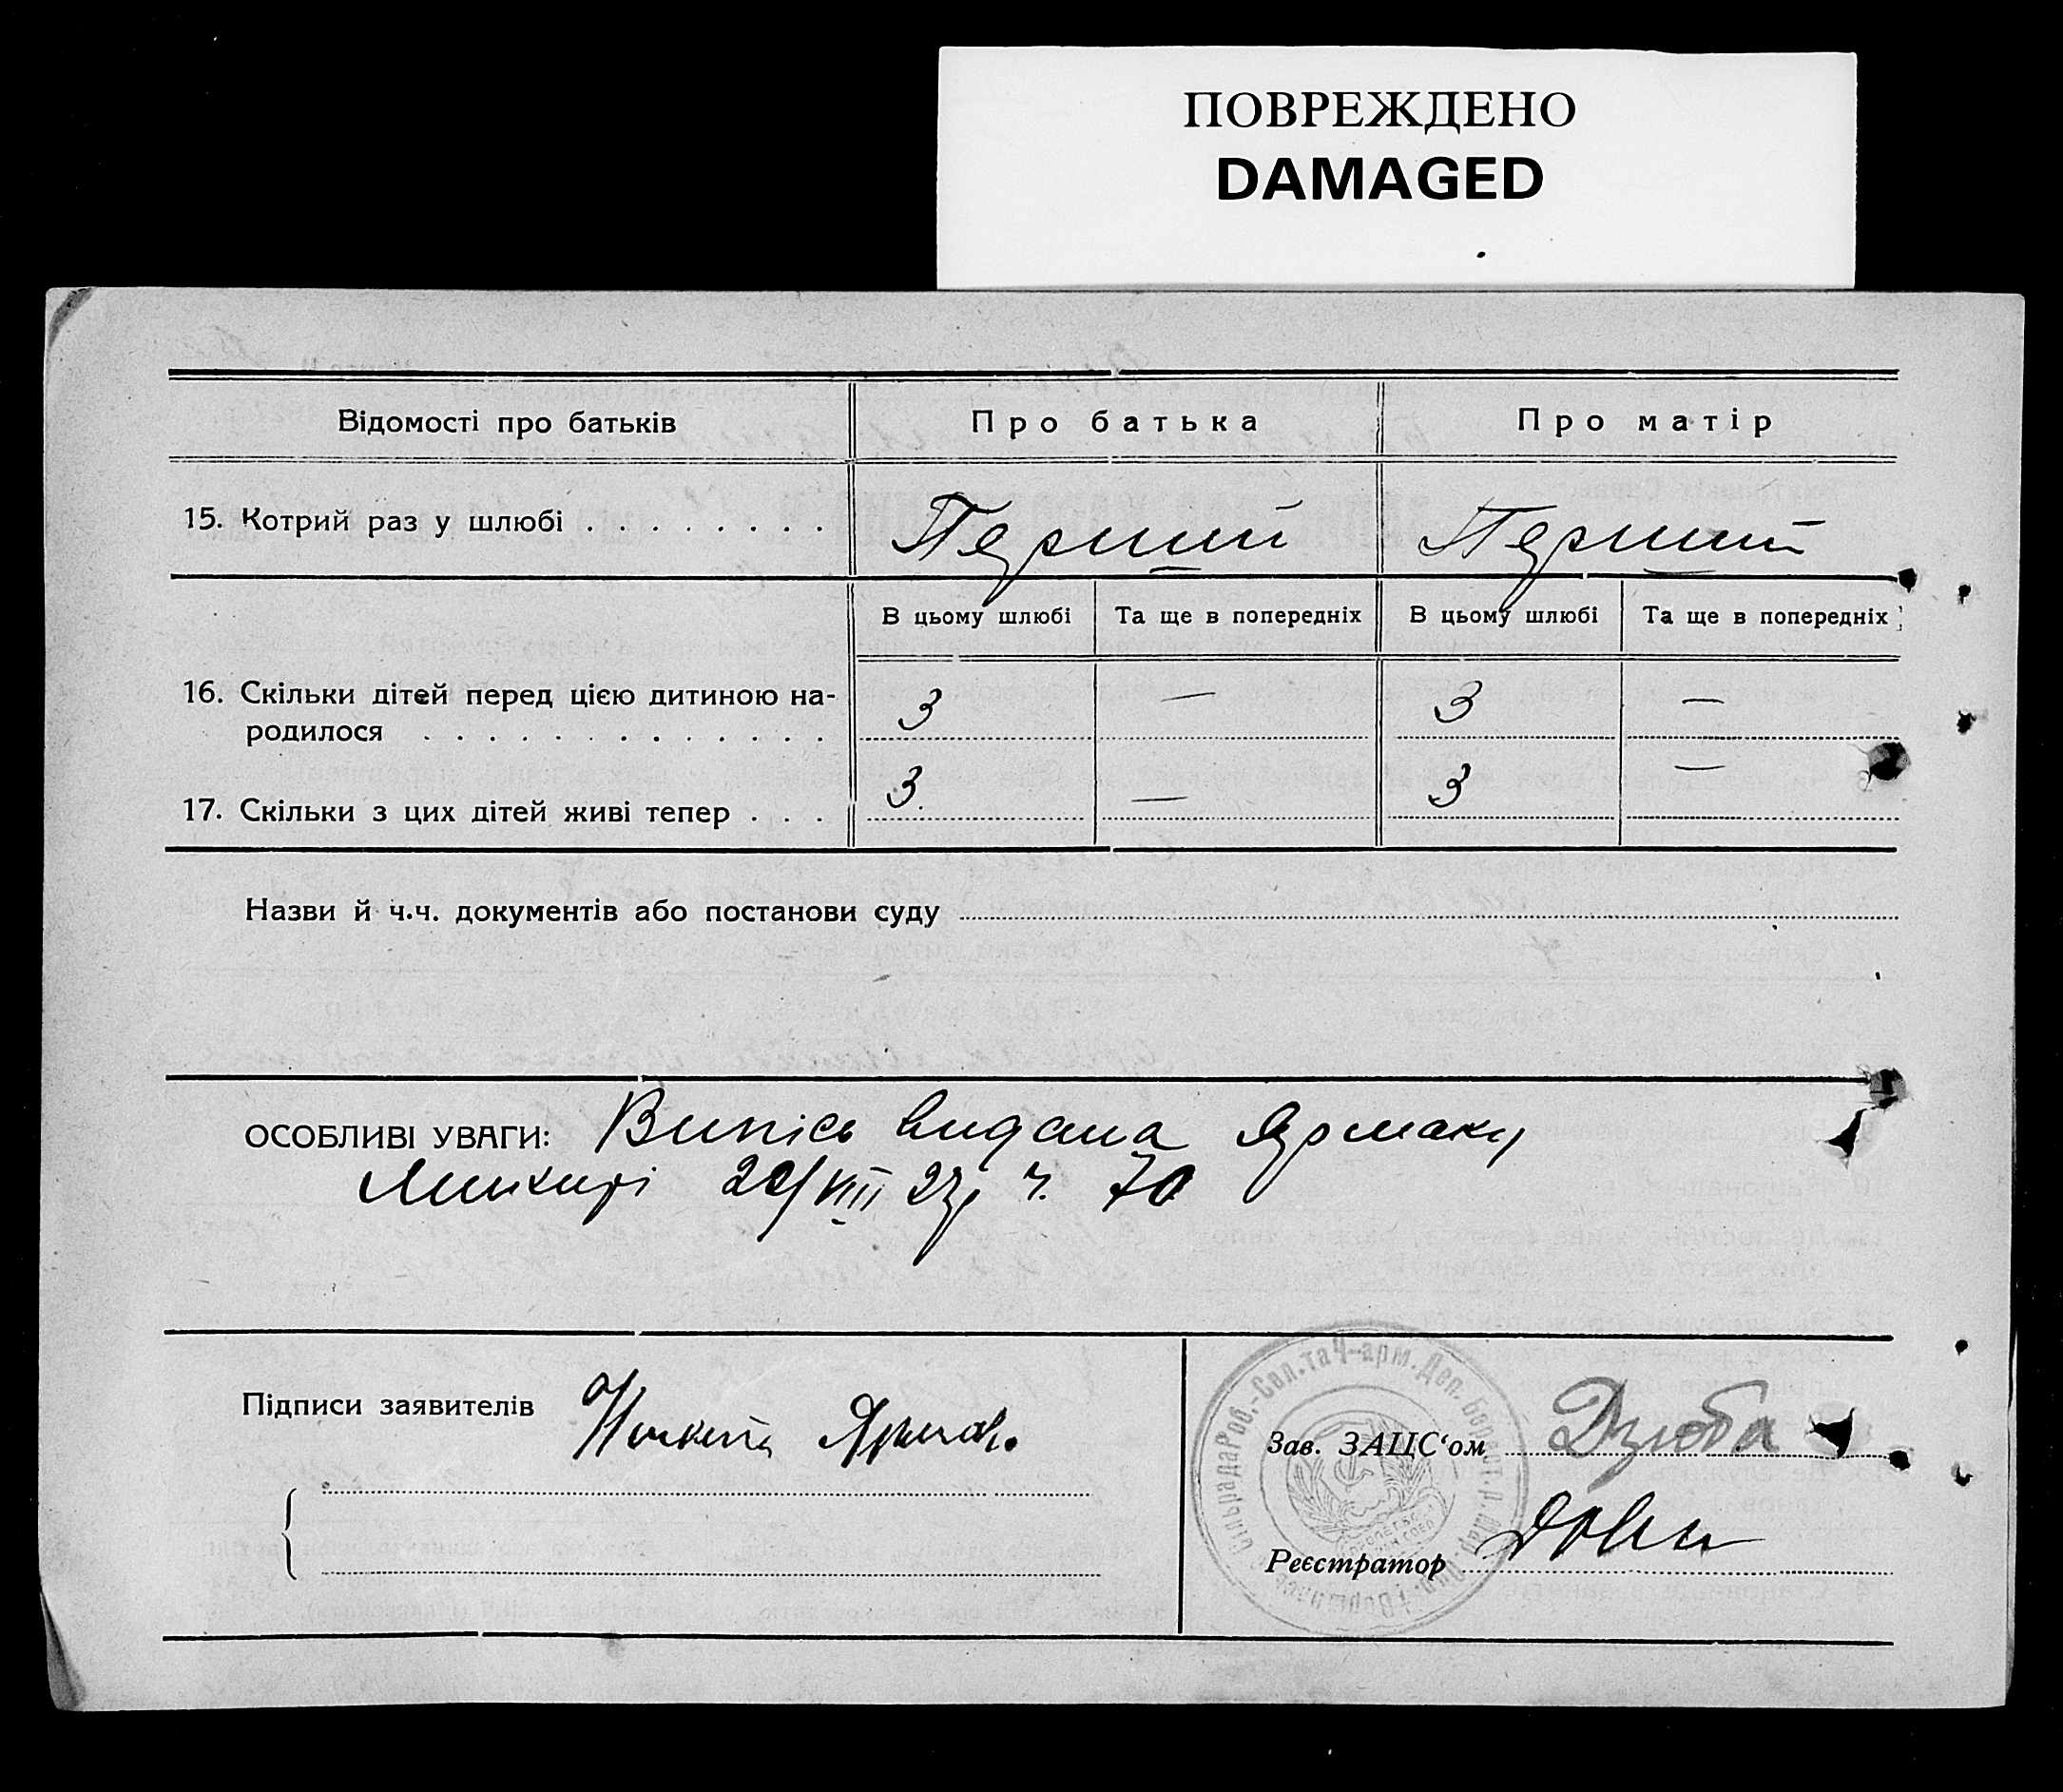 ПОВРЕЖДЕНО
DAMAGED
Відомості про батьків
Про батька
Про матір
15. Котрий раз у шлюбі . . . . . . . .
Перший
Перший
В цьому шлюбі
Та ще в попередніх
В цьому шлюбі
Та ще в попередніх
16. Скільки дітей перед цією дитиною на-
родилося . . . . . . . . . . . . .
3
—
3
—
17. Скільки з цих дітей живі тепер . . .
3
—
3
—
Назви й ч.ч. документів або постанови суду
ОСОБЛИВІ УВАГИ: Випісь видана Ярмаку
Микиті VIII ч. 70
Підписи заявителів Ярмак
Зав. ЗАЦС'ом Дзюба
Реєстратор
Сільрада Роб.-Сел. та Ч-арм. Деп.